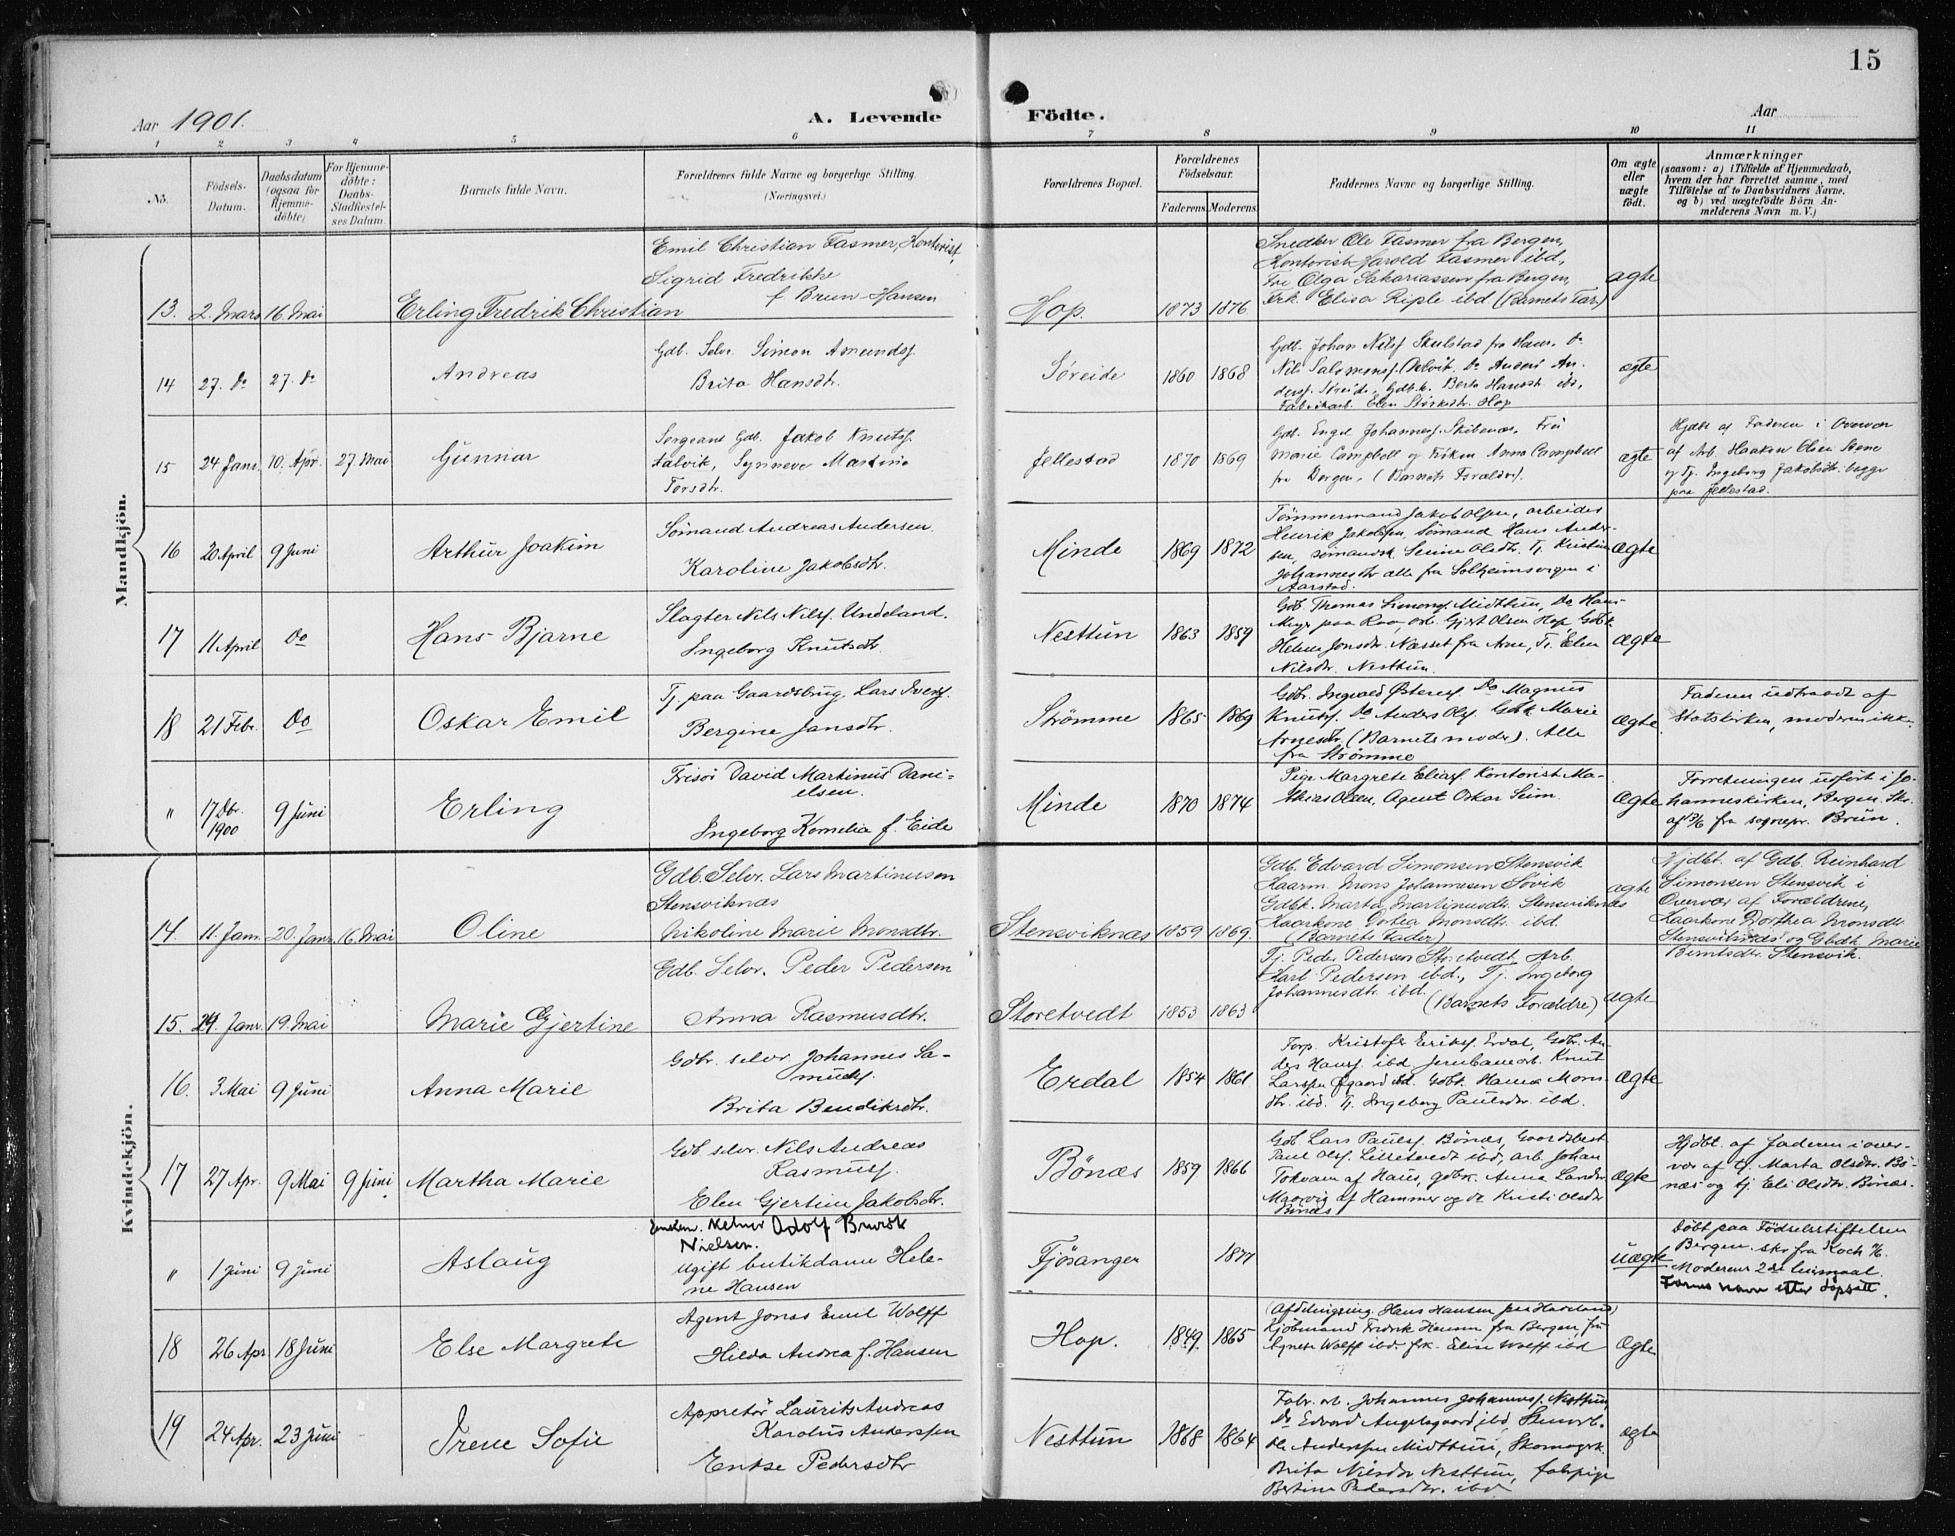 15
Aar 1901.
A. Levende Födte.
Aar
1 2 3 4 5 6 7 8 9 10 11
No.
Födsels-Datum.
Daabsdatum (ogsaa for Hjemme-döbte)
For Hjemme-döbte: Daabs-Stadfæstel-ses Datum
Barnets fulde Navn.
Forældrenes fulde Navne og borgerlige Stilling.
(Næringsvei.)
Forældrenes Bopæl.
Forældrenes Födselsaar.
Faderens. Moderens.
Faddernes Navne og borgerlige Stilling.
Om ægte eller uægte födt.
Anmærkninger
(saasom: a) i Tilfælde af Hjemmedaab,
hvem der har forrettet samme, med
Tilföielse af to Daabsvidners Navne,
og b) ved uægtefödte Börn An-
melderens Navn m. V.)
Mandkjön.
Emil Christian Fasmer, Kontorist,
Sigrid Fredrikke
f Brun-Hansen
13. 2. Mars 16. Mai Erling Fredrik Christian
Hop. 1873 1876
Snedker Ole Fasmer fra Bergen,
Kontorist Harold Fasmer ibd,
Fru Olga Sakariassen fra Bergen,
Frk. Elisa Riple ibd (Barnets Far)
ægte
14 27. Do 27. Do Andreas
Gdb. Selv. Simon Amundsf.
Brita Hansdtr.
Söreide 1860 1868
Gdb. Johan Nilsf Skulstad fra Haus, Do
Nils Salomonsf. Do Anders An-
dersf. Söreide, Gdbk. Berta Hansdtr ibd,
Fabrikarb. Elen Hop
ægte
15 24 Janr. 10. Apr. 27. Mai Gunnar
Sergeant Gdb. Jakob Knutsf.
Synneve Martine
Torsdtr.
Jellestad 1870 1869
Gdb. Engel Johannesf. Skibenes, Fru
Marie Campbell og Fröken Anna Campbell
fra Bergen, (Barnets Forældre).
ægte
Hjdbt af Faderen i Overvær
af Arb. Haakon Olsen Stene
og Tj. Ingeborg Jakobsdtr. begge
paa Jellestad.
16 20 April 9 Juni Arthur Joakim
Sömand Andreas Andersen.
Karoline Jakobsdtr.
Minde 1869 1872
Tömmermand Jakob Olsen, arbeider
Henrik Jakobsen sömand Hans Ander-
sen, sömandsk. Senine Olsdtr. Tj. Kristine
Johannesdtr alle fra Solheimsvigen i
Aarstad.
ægte
17 11 April Do Hans Bjarne
Slagter Nils Nilsf. Undeland.
Ingeborg Knutsdtr.
Nesttun 1863 1859
Gdb. Thomas Simonsf. Midttun, Do Hans
Myr paa Raa, arb. Gjert Olsen Hop, Gdbk.
Helene Jonsdtr. Næsset fra Arne, Tj. Elen
Nilsdtr. Nesttun
ægte
18 21 Febr. Do Oskar Emil
Tj. paa Gaardsbrug, Lars Iversf.
Bergine Jansdtr.
Strömme 1865 1869
Gdbr. Ingvald Do Magnus
Knutsf. Do Anders Olsf. Gdbk Marie
Arnesdtr. (Barnets moder). Alle
fra Strömme
ægte
Faderen udtraadt af
Statskirken, moderen ikke.
" 17 Dbr. 1900 9 Juni Erling
Frisör David Martinus Dani-
elsen.
Ingeborg Kornelia f. Eide
Minde 1870 1874
Pige Margrete Eliasf. Kontorist Ma-
thias Olsen, Agent Oskar Seim.
ægte
Forretningen udfört i Jo-
hanneskirken, Bergen. Skr.
af 13/6 fra sognepr. Brun.
Kvindekjön.
14. 11. Janr. 20. Janr. 16. Mai Oline
Gdb. Selv. Lars Martinussen
Stensviknæs
Nikoline Marie Monsdtr.
Stensviknæs 1859 1869.
Gdb. Edvard Simonsen Stensvik
Kaarm. Mons Johannesen Sövik
Gdbk. Marta Martinusdtr. Stensviknæs
Kaarkone Dortea Monsdtr. ibd.
(Barnets Fader)
ægte
Hjdbt. af Gdb. Reinhard
Simonsen Stensvik i
Overvær af Forældrene,
Kaarkone Dorthea Monsdtr
Stensviknæs og Gbdk Marie
Berntsdtr. Stensvik.
15. 24. Janr. 19. Mai Marie Gjertine
Gdb. Selv. Peder Pedersen
Anna Rasmusdtr.
Storetvedt 1853 1863
Tj. Peder Pedersen Storetvedt, Arb.
Karl Pedersen ibd., Tj. Ingeborg
Johannesdtr. ibd.
(Barnets Forældre)
ægte
16. 3 Mai 9 Juni Anna Marie
Gdbr. selv. Johannes Sa-
muelsf.
Brita Bendiksdtr.
Erdal 1854 1861
Forp. Kristofer Eriksf. Erdal, Gdbr. An-
ders Hansf. ibd Jernbanearb. Knut
Larsen Öyaard ibd. Gdbk. Hanna Mons-
dtr. ibd. Tj. Ingeborg Paulsdtr. ibd.
ægte
17 27 Apr. 9 Mai 9 Juni Martha Marie
Gdb selv. Nils Andreas
Rasmusf.
Elen Gjertine Jakobsdtr.
Bönæs 1859 1866
Gdb. Lars Paulsf. Bönæs, Gaardsbest
Paul Olsf. Lilletvedt ibd, arb. Johan
Tokvam af Haus, gdbk. Anna Larsdtr
af Hammer og do Kristi Olsdtr
Bönæs
ægte
Hjdbt. af Faderen i over-
vær af tj. Marta Olsdtr. Bö-
næs og tj. Eli Olsdtr. Bönæs.
" 1 Juni 9 Juni Aslaug
Kelner Adolf
Nielsen.
ugift butikdame Hele-
ne Hansen
Fjösanger 1877
uægte
Döbt paa Födselsstiftelsen
Bergen. skr fra Koch
Moderens 2det leiermaal.
Farens navn etter döpsatt.
18 26 Apr 18 Juni Else Margrete
Agent Jonas Emil Wolff
Hilda Andrea f. Hansen
Hop. 1849 1865
Hans Hansen paa Haukeland
Kjöbmand Fredrik Hansen fra Bergen, fru
Agnete Wolff ibd. frk. Elise Wolff ibd
ægte
19 24 Apr. 23 Juni Irene Sofie
Appretör Laurits Andreas
Karolus Anderssen
Entse Pedersdtr
Nesttun 1868 1864
Fabr. arb. Johannes Johannesf. Nesttun,
Do Edvard ibd,
Ole Anderssen Midttun, Skomagerk.
Brita Nilsdtr Nesttun, fabrpige
Bertine Pedersdtr. ibd
ægte